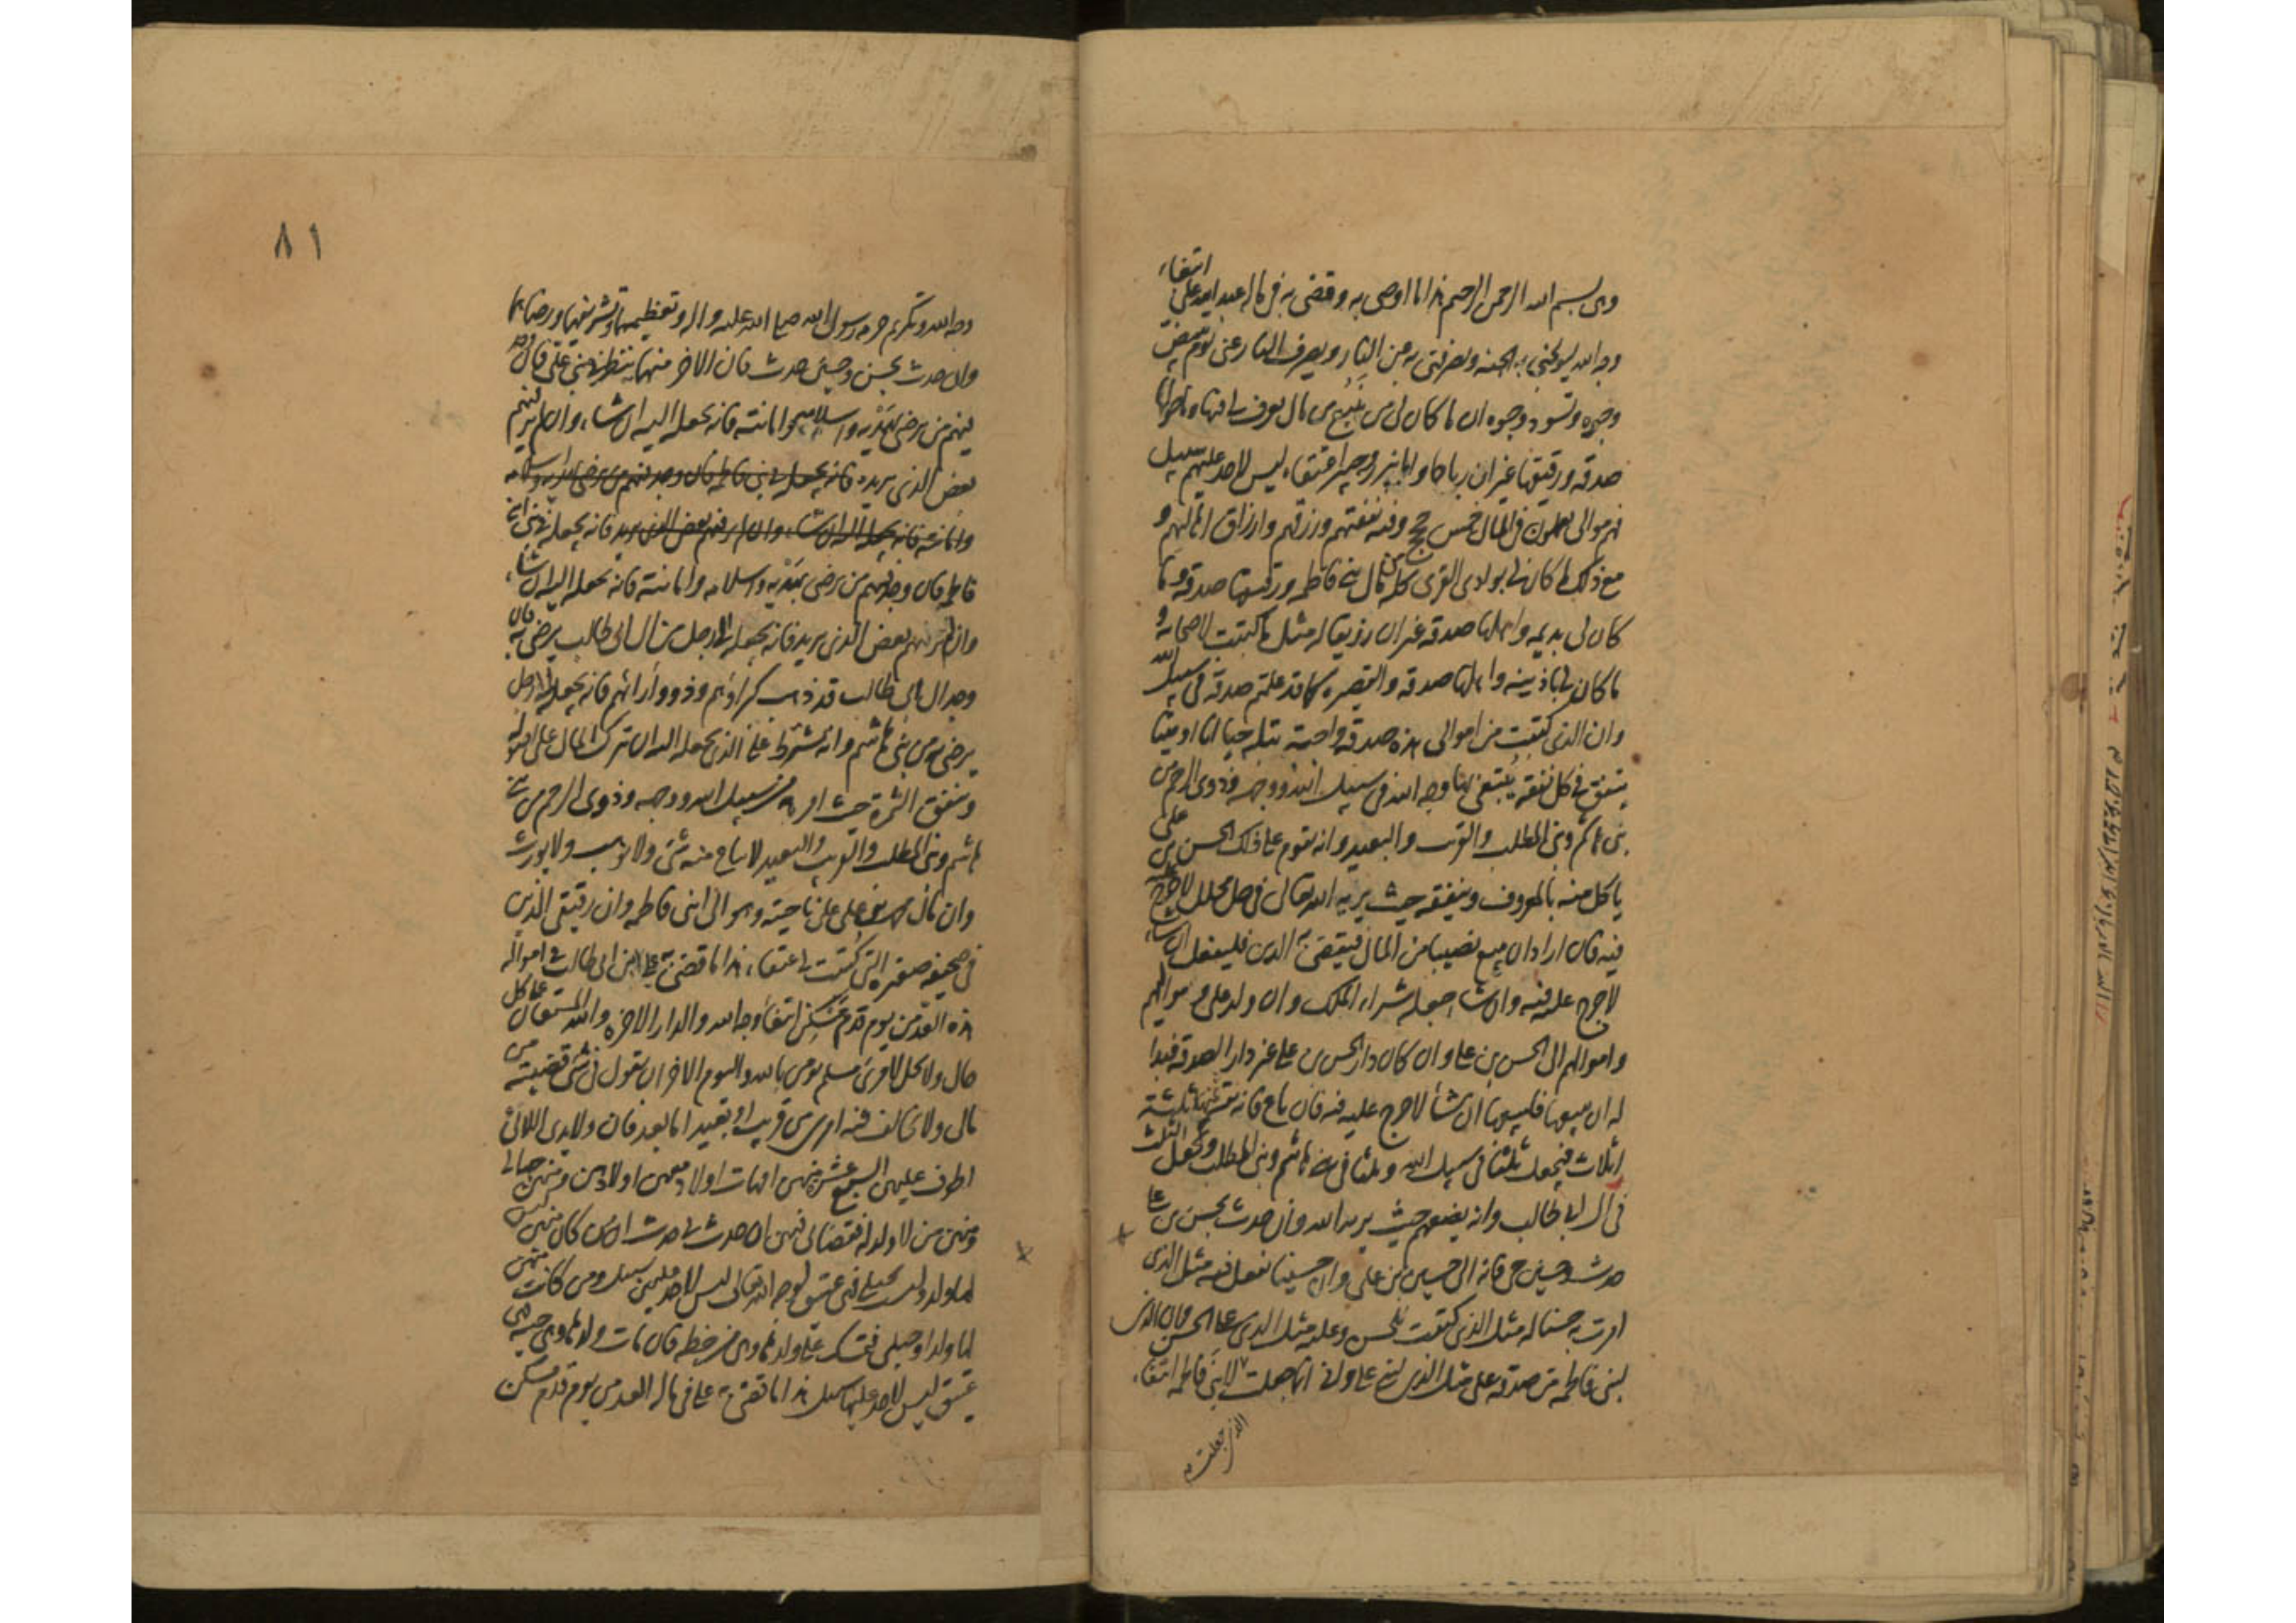 وهى بسم الله الرحمن الرحيم هذا ما اوصى به وقضى به فى ماله عبد الله على ابتغاء
وجه الله ليولجنى به الجنه ويصرفنى به عن النار ويصرف النار عنى يوم تبيض
وجوه وتسود وجوه ان ما كان لى من ينبع من مال يعرف لى فيها وما حولها
صدقه ورقيقها غير ان رباحا وابا نيزر وجبيرا عتقاء ليس لاحد عليهم سبيل
فهم موالى يعملون فى المال خمس حجج وفيه نفقتهم ورزقهم وارزاق اهاليهم و
مع ذلك ما كان لى بوادى القرى كله من مال بنى فاطمه ورقيقها صدقه وما
كان لى بديمه واهلها صدقه غير ان رزيقا له مثل ما كتبت لاصحابه و
ما كان لى باذينه واهلها صدقه والقصيره كما قد علمتم صدقه فى سبيل الله
وان الذى كتبت من اموالى هذه صدقه واجبة بتله حيا انا او ميتا
ينفق فى كل نفقه يبتغى بها وجه الله فى سبيل الله ووجهه وذوى الرحم من
بنى هاشم وبنى المطلب والقريب والبعيد وانه يقوم على ذلك الحسن بن على
ياكل منه بالمعروف وينفقه حيث يريه الله تعالى فى حل محلل لا حرج عليه
فيه فان اراد ان يبيع نصيبا من المال فيقضى به الدين فليفعل ان شاء
لا حرج عليه فيه وان شاء جعله شراء الملك وان ولد على ومواليهم
واموالهم الى الحسن بن على وان كان دار الحسن بن على غير دار الصدقه فبدا
له ان يبيعها فليبعها ان شاء لا حرج عليه فيه فان باع فانه يقسمها ثلثة
اثلاث فيجعل ثلثا فى سبيل الله وثلثا فى بنى هاشم وبنى المطلب ويجعل الثلث
فى ال ابى طالب وانه يضعهم حيث يريه الله وان حدث بحسن بن على
حدث وحسين حى فانه الى حسين بن على وان حسينا يفعل فيه مثل الذى
امرت به حسنا له مثل الذى كتبت للحسن وعليه مثل الذى على الحسن وان الذى
لبنى فاطمه من صدقه على مثل الذى لبنى على وانى انما جعلت لابنى فاطمه ابتغاء
الذى جعلت
٨١
وجه الله وتكريم حرمه رسول الله صلى الله عليه واله وتعظيمها وتشريفها ورضاهما
وان حدث بحسن وحسين حدث فان الاخر منهما ينظر فى بنى على فان وجد
فيهم من يرضى بهديه واسلامه وامانته فانه يجعله اليه ان شاء وان لم ير فيهم
بعض الذى يريده فانه يجعله الى بنى فاطمه فان وجد فيهم من يرضى بهديه واسلامه
وامانته فانه يجعله اليه ان شاء وان لم ير فيهم بعض الذى يريد فانه يجعله فى بنى ابنى
فاطمه فان وجد فيهم من يرضى بهديه واسلامه وامانته فانه يجعله اليه ان شاء
وان لم ير فيهم بعض الذى يريد فانه يجعله الى رجل من ال ابى طالب يرضى به فان
وجد ال ابى طالب قد ذهب كبراؤهم وذوو ارائهم فانه يجعله الى رجل
يرضى من بنى هاشم وانه يشترط على الذى يجعله اليه ان يترك المال على اصوله
وينفق الثمرة حيث امره من سبيل الله ووجهه وذوى الرحم من بنى
هاشم وبنى المطلب والقريب والبعيد لا يباع منه شئ ولا يوهب ولا يورث
وان مال على على ناحيته وهو الى ابنى فاطمه وان رقيقى الذين
فى صحيفه صغيره التى كتبت لى عتقاء هذا ما قضى به على بن ابى طالب فى امواله
هذه الغد من يوم قدم مسكن ابتغاء وجه الله والدار الاخره والله المستعان على كل
حال ولا يحل لامرئ مسلم يومن بالله واليوم الاخر ان يقول فى شئ قضيته من
مال ولا يخالف فيه امرى من قريب او بعيد اما بعد فان ولايدى اللائى
اطوف عليهن السبع عشر منهن امهات اولاد معهن اولادهن ومنهن حبالى
ومنهن من لا ولد له فقضائى فيهن ان حدث بى حدث ان من كان منهن ليس
لها ولد وليست بحبلى فهى عتيق لوجه الله تعالى ليس لاحد عليهن سبيل ومن كانت منهن
لها ولد او حبلى فتمسك على ولدها وهى من حظه فان مات ولدها وهى حيه فهى
عتيق ليس لاحد عليها سبيل هذا ما قضى به على فى ماله الغد من يوم قدم مسكن